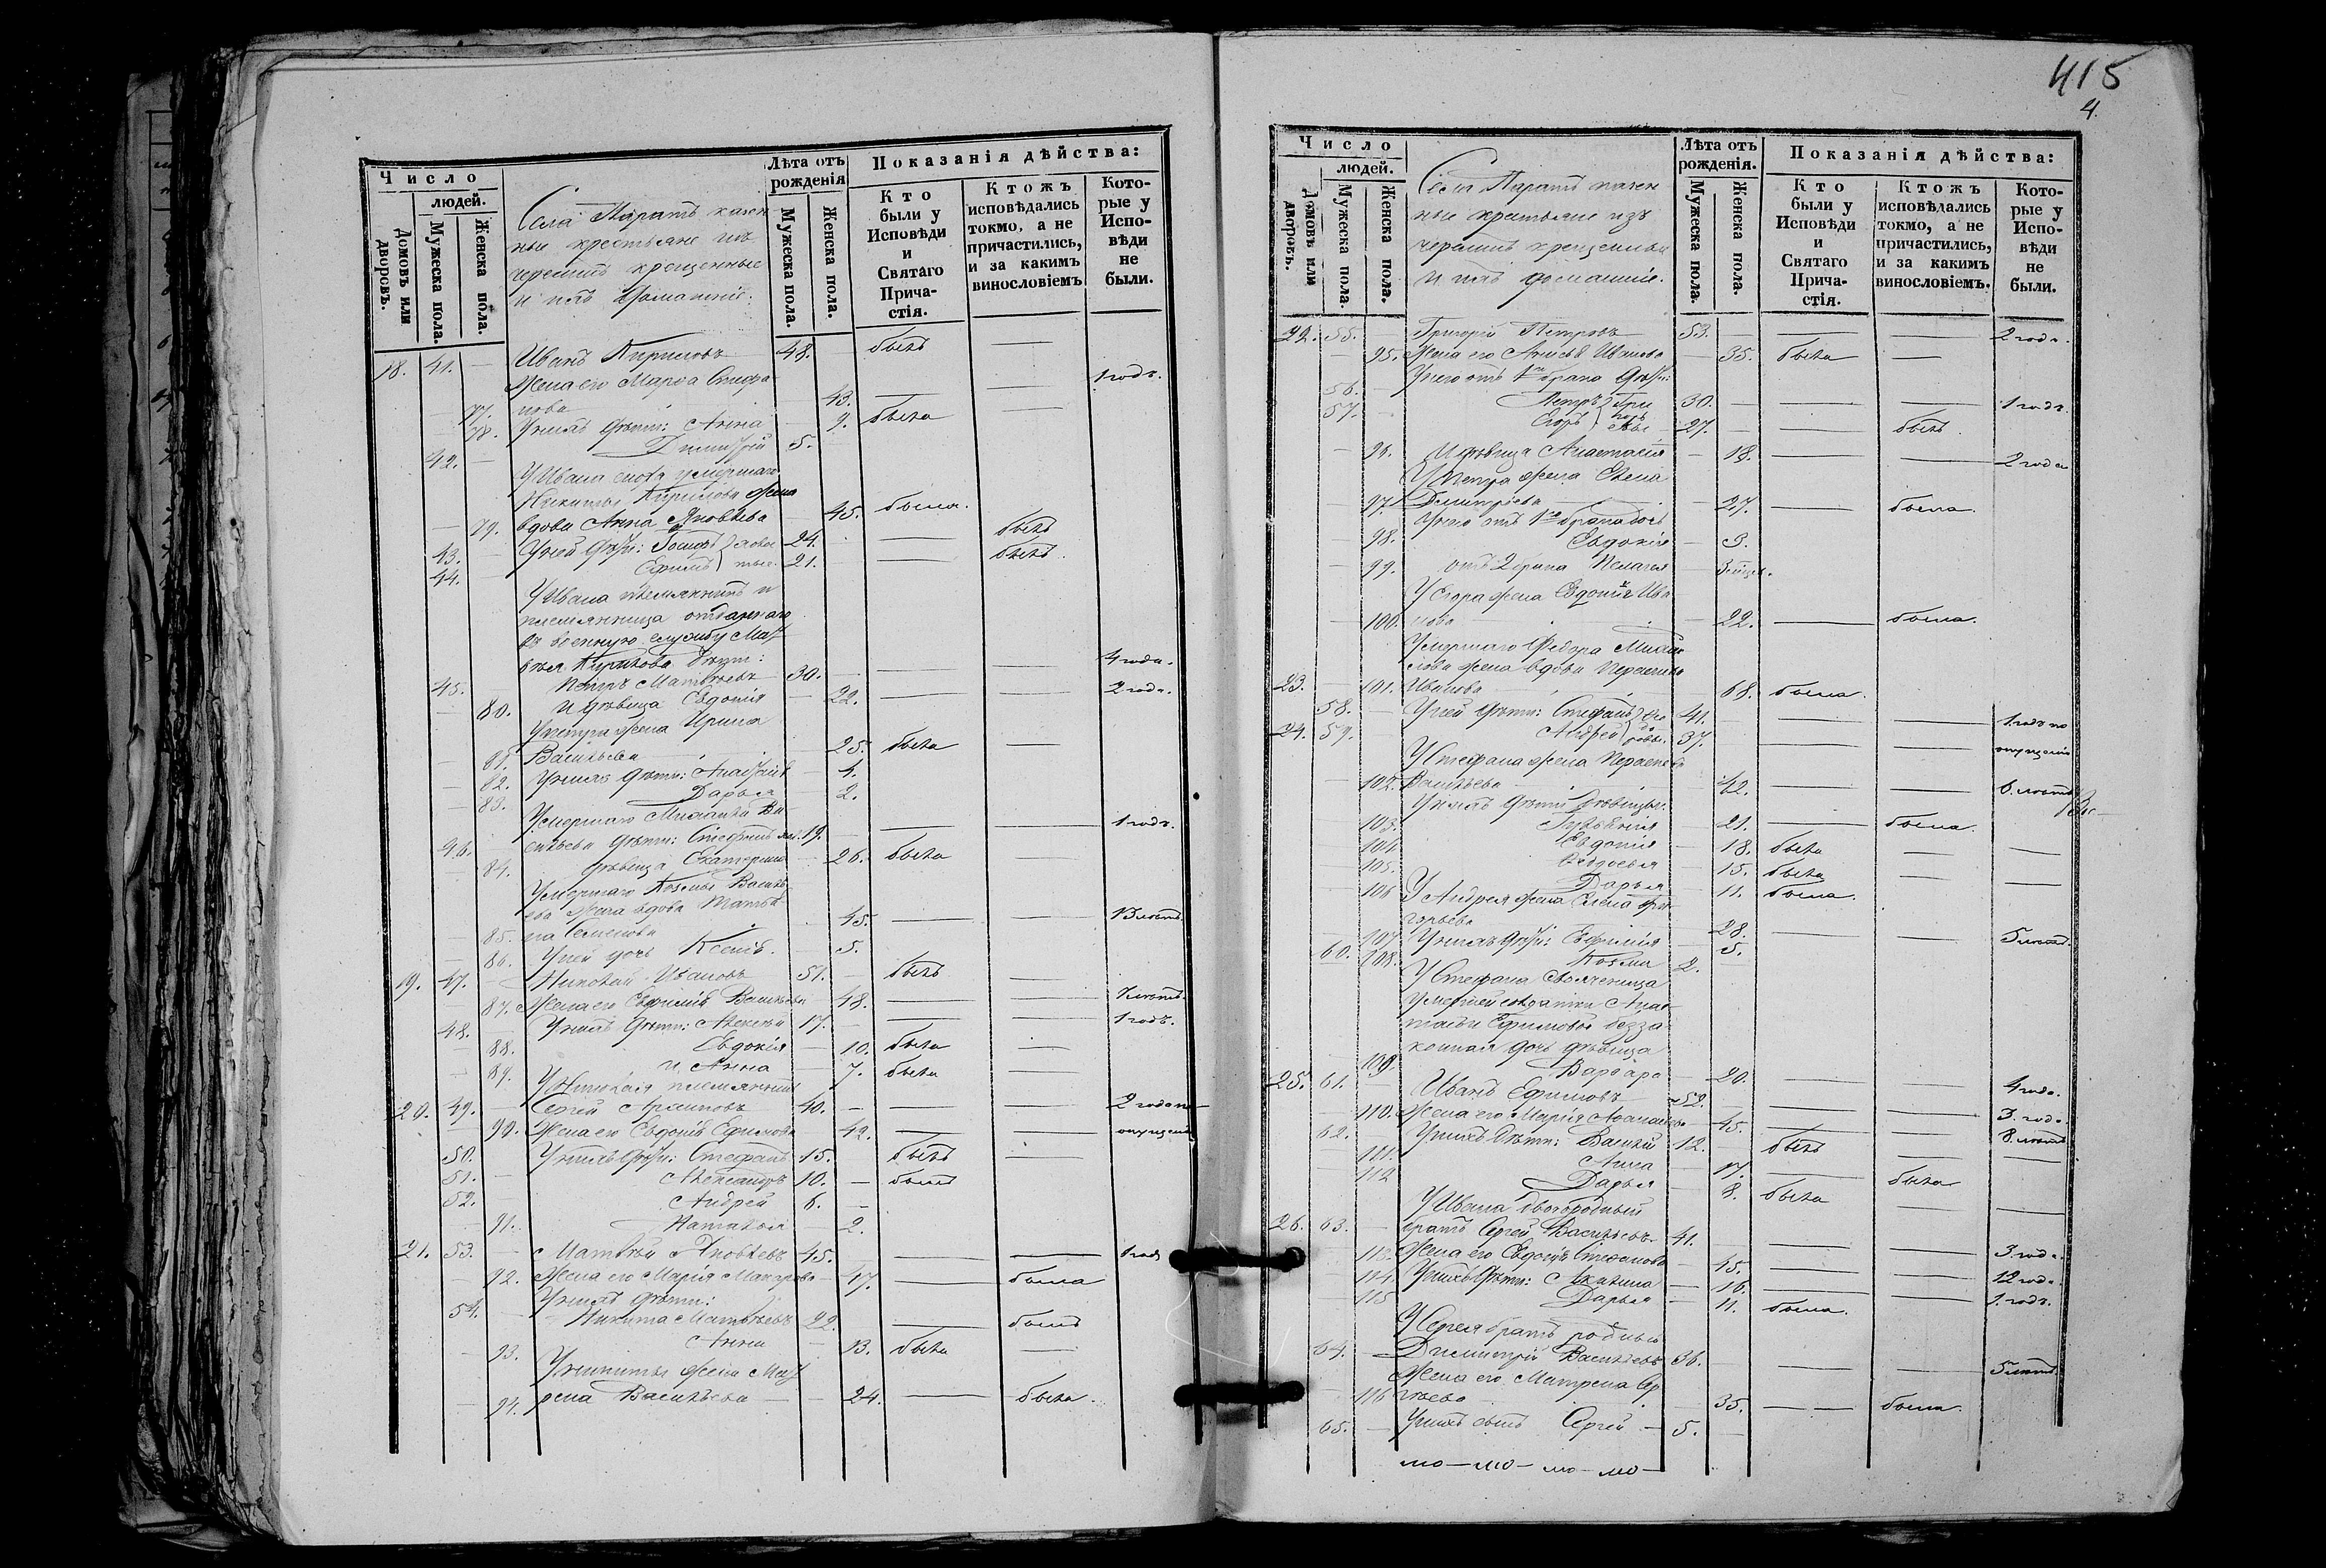 415
4.
Число
людей.
Домовъ или дворовъ.
Мужеска пола.
Женска пола.
Села Паратъ казен
ные крестьяне изъ
черемисъ крещенные
и ихъ домашніе.
Лѣта отъ рожденія
Мужеска пола.
Женска пола.
Показанія дѣйства:
Кто были у Исповѣди и Святаго Прича-стія.
Ктожъ исповѣдались токмо, а не причастились, и за какимъ винословіемъ
Кото-рые у Испо-вѣди не были.
18. 41. — Иванъ Кириловъ 48. — былъ —
Жена его Марѳа Стефа
77. нова — 43. — — 1 годъ.
78. У нихъ дѣти: Анна — 9. была —
42. — Димитрій 5.
У Ивана сноха умершаго
Никиты Кирилова жена
79. вдова Анна Яковлева — 45. была.
43. У ней дѣти: 24. — былъ
44. Ефимъ 21. — былъ.
У Ивана племянникъ и
племянница отданнаго
въ военную службу Мат
вѣя Кирилова дѣти:
45. — Петръ Матвѣевъ 30. — — — 4 года.
80. и дѣвица Евдокія — 22. — — 2 года.
У Петра жена Ирина
81. Васильева — 25. была —
82. У нихъ дѣти: — 4.
83. Дарья — 2.
Умершаго Михаила Ва
46. сильева дѣти: Стефанъ 19. — — — 1 годъ.
84. дѣвица Екатерина — 26. была —
Умершаго Козмы Василь
ева жена вдова Татья
85. на Семенова 45. — — 13 лѣтъ.
86. У ней дочь Ксенія. 5.
19. 47. — Николай Ивановъ 51. — былъ —
87. Жена его Евфимія Васильева 48. — — 7 лѣтъ.
48. У нихъ дѣти: Алексѣй 17. — — — 1 годъ.
88. Евдокія — 10. была —
89. и Анна — 7. была —
У Николая племянникъ
20. 49. — Сергѣй Архиповъ 40. — — — 2 года по
90. Жена его Евдокія Ефимова 42. — — опущен
50. У нихъ дѣти: Стефанъ 15. — былъ —
51. — Александръ 10. — былъ
52. Андрей 6. —
91. Наталья — 2.
21. 53. — Матвѣй Яковлевъ 45. — — 1 годъ
92. Жена его Марія Макарова — 47. — была
У нихъ дѣти:
54. — Никита Матвѣевъ 22. — былъ
93. Анна — 13. была —
У Никиты жена Мат
94. рена Васильева — 24. — была.
Число
людей.
Домовъ или дворовъ.
Мужеска пола.
Женска пола.
Села Паратъ казен
ные крестьяне изъ
черемисъ крещенные
и ихъ домашніе.
Лѣта отъ рожденія.
Мужеска пола.
Женска пола.
Показанія дѣйства:
Кто были у Исповѣди и Святаго Прича-стія.
Ктожъ исповѣдались токмо, а не причастились, и за какимъ винословіемъ.
Кото-рые у Испо-вѣди не были.
22. 55. — Григорій Петровъ 53. — — 2 года.
95. Жена его Ивановa — 35. была —
У него отъ 1го брака дѣти:
56. Петръ Гри 30. — — — 1 годъ.
57. Егоръ горь евы 27. — — былъ.
96. и дѣвица Анастасія — 18. — — 2 года
У Петра жена Елена
97. Димитріева — 27. — была.
У него отъ 1го брака дочь
98. Евдокія — 3.
99. отъ 2 брака Пелагея — 3 мѣс.
У Егора жена Евдокія Ива
100. нова — 22. — была.
Умершаго Ѳедора Михай
лова жена вдова Параскева
23. 101. Иванова — 68. была.
58. — У ней дѣти: Стефанъ Ѳео 41. — — 1 годъ по
24. 59. — Андрей доровы 37. — — опущенію
У Стефана жена Параскева
102. Васильева — 42. — — 6 лѣтъ
У нихъ дѣти дѣвицы:
103. — 21. — была.
104. Евдокія — 18. была —
105. Ѳедосья — 15. была —
106 Дарья — 11. была.
У Андрея жена Елена Гри
107 горьева — 28. — — 5 лѣтъ.
108. У нихъ дѣти: Евфимія — 5.
60. Козма 2. —
У Стефана свояченица
умершей солдатки Анас
тасьи Ефимовой безза
конная дочь дѣвица
109. Варвара — 20. — — 4 года.
25. 61. Иванъ Ефимовъ 52. — — 3. года
110. Жена его Марія Аѳанасьева 45. — — 8. лѣтъ
62. У нихъ дѣти: Василій 12. былъ —
111. Анна — 17. — была
112 Дарья — 8. была —
У Ивана двоюродный
26. 63. — братъ Сергѣй Васильевъ 41. — — 3 года.
113. Жена его Евдокія Степанова — 45. — — 12 года.
114. У нихъ дѣти: Акилина — 16. — — 1. годъ.
115 Дарья — 11. была.
У Сергѣя братъ родный
64. — Димитрій Васильевъ 36. — — 5 лѣтъ
Жена его Матрена Сер
116 гѣева — 35. — была.
65. — У нихъ сынъ Сергѣй — 5. —